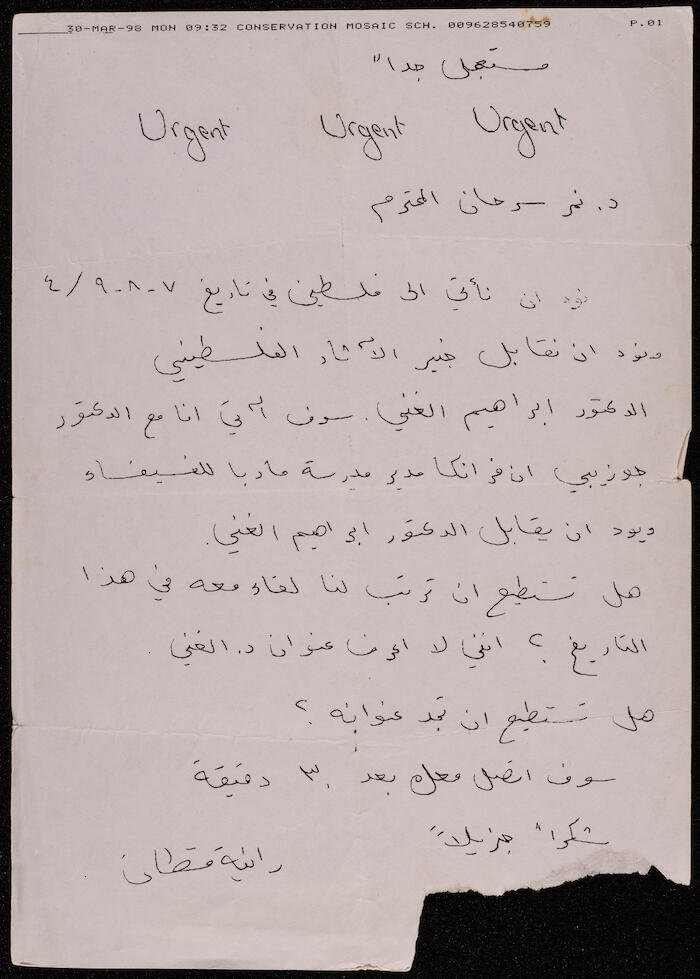 30-MAR-98 MON 09:32 CONSERVATION MOSAIC SCH. 009628540759 P.01
مستعجل جداً
Urgent Urgent Urgent
د. نمر سرحان المحترم
نود ان نأتي الى فلسطين في تاريخ ٧-٨-٩/٤
ونود ان نقابل خبير الآثار الفلسطيني
الدكتور ابراهيم الغني. سوف آتي انا مع الدكتور
جوزيبي ان فرانكا مدير مدرسة مادبا للفسيفساء
ويود ان يقابل الدكتور ابراهيم الغني.
هل تستطيع ان ترتب لنا لقاء معه في هذا
التاريخ؟ انني لا اعرف عنوان د. الغني.
هل تستطيع ان تجد عنوانه؟
سوف اتصل معك بعد ٣٠ دقيقة
شكراً جزيلاً
رانية قسطان